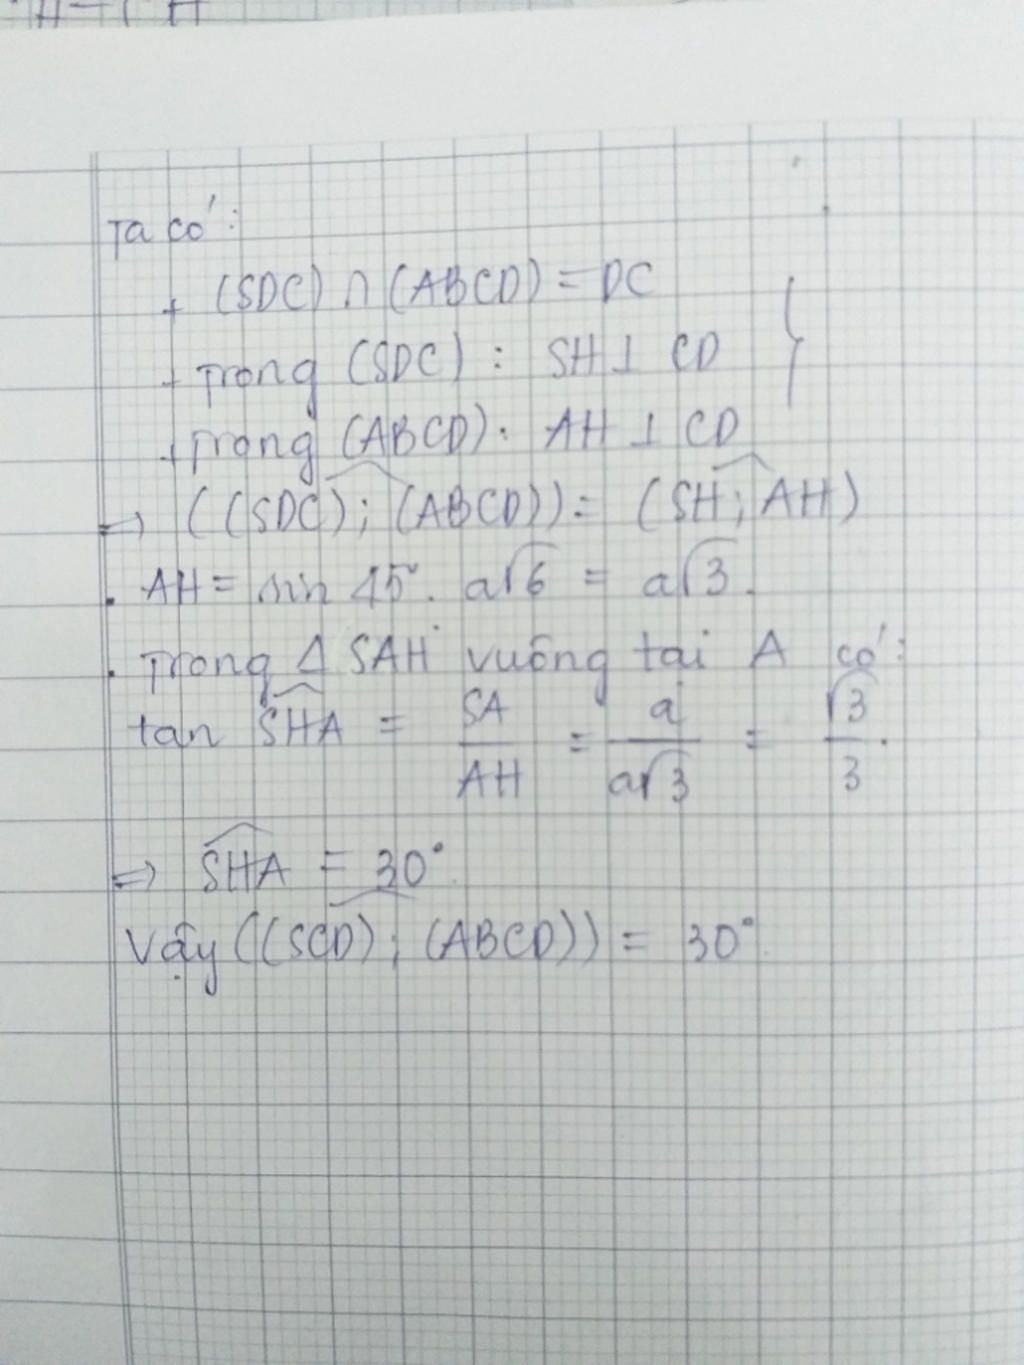 Ta có:
+ (SDC) ∩ (ABCD) = DC
+ Trong (SDC) : SH ⊥ CD
+ Trong (ABCD). AH ⊥ CD
=> ((SDC); (ABCD)) = (SH; AH)
. AH = sin 45°. a√6 = a√3.
. Trong Δ SAH vuông tại A có:
tan SHA = SA/AH = a/a√3 = √3/3.
=> SHA = 30°.
Vậy ((SCD); (ABCD)) = 30°.